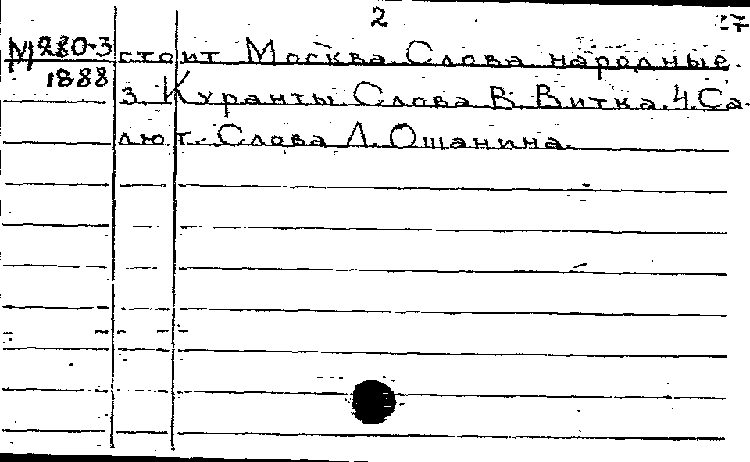 2
М 280-3 стоит Москва. Слова народные.
1888 3. Куранты. Слова В. Витка. 4. Са-
лют. Слова Л. Ошанина.